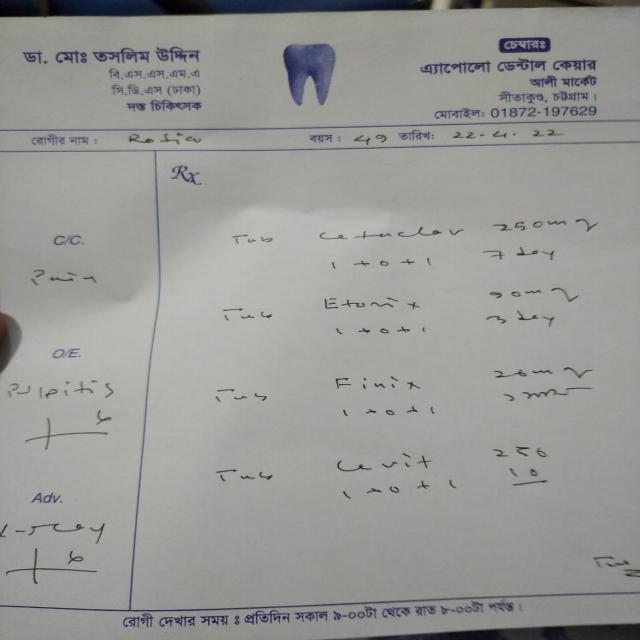 ডা. মোঃ তসলিম উদ্দিন
বি.এস.এস.এম.এ
সি.ডি.এস (ঢাকা)
দন্ত চিকিৎসক
চেম্বারঃ
এ্যাপোলো ডেন্টাল কেয়ার
আলী মার্কেট
সীতাকুণ্ড, চট্টগ্রাম।
মোবাইল: 01872-197629
রোগীর নাম : বয়স : 49 তারিখ: 22-4-22
Rx
C/C.
Pain
O/E.
Pulpitis
6
Adv.
X-ray
6
Tab 250mg
1+0+1 7 day
Tab Etorix 90mg
1+0+1 3 day
Tab Finix 20mg
1+0+1
Tab Cevit 250
1+0+1 10
রোগী দেখার সময় ঃ প্রতিদিন সকাল ৯-০০টা থেকে রাত ৮-০০টা পর্যন্ত।